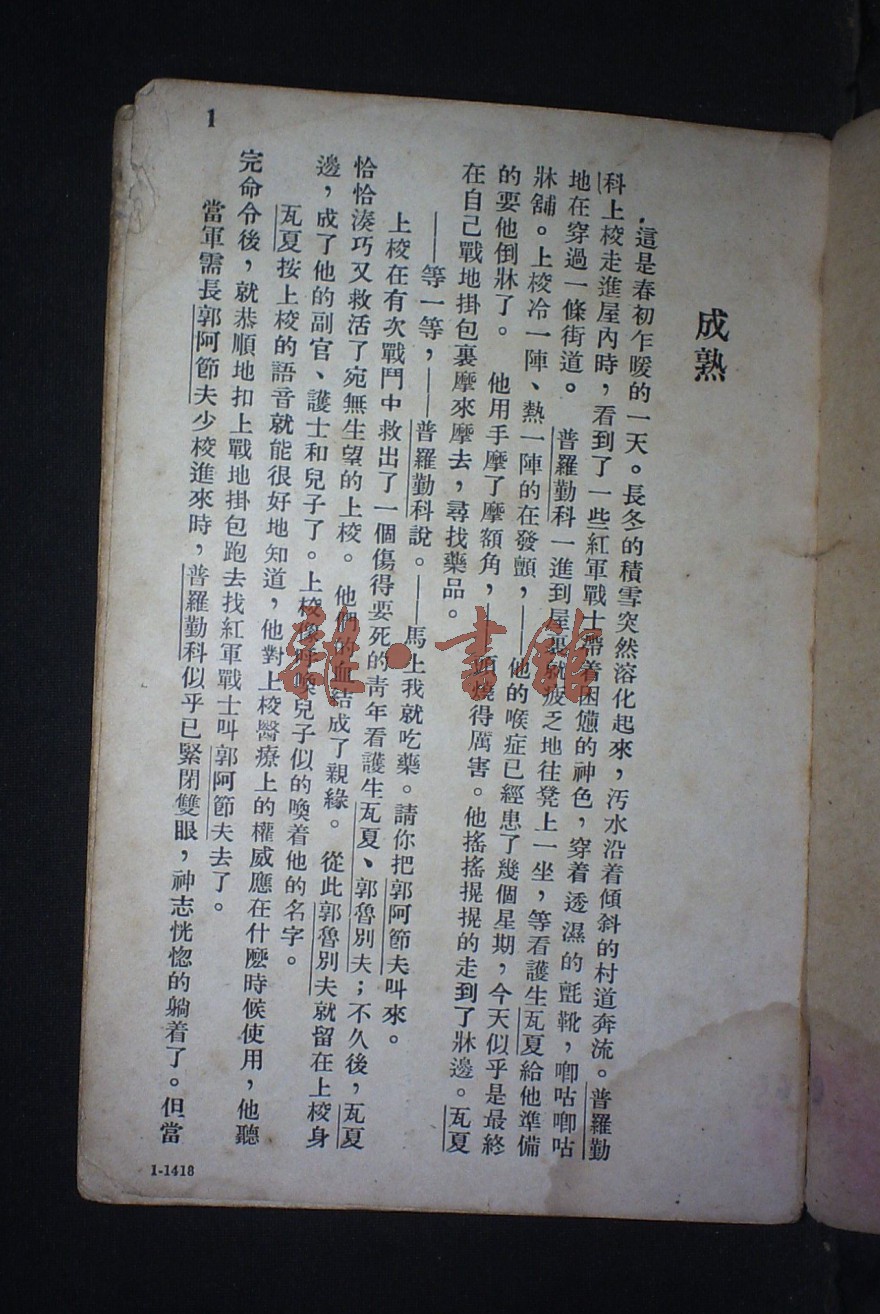 成熟
這是春初乍暖的一天。長冬的積雪突然溶化起來，汚水沿着傾斜的村道奔流。普羅勤
科上校走進屋內時，看到了一些紅軍戰士帶着困憊的神色，穿着透濕的氈靴，唧咕唧咕
地在穿過一條街道。　普羅勤科一進到屋裏就疲乏地往凳上一坐，等看護生瓦夏給他準備
牀舖。上校冷一陣、熱一陣的在發顫，——他的喉症已經患了幾個星期，今天似乎是最終
的要他倒牀了。　他用手摩了摩額角，——頭燒得厲害。他搖搖㨪㨪的走到了牀邊。瓦夏
在自己戰地掛包裏摩來摩去，尋找藥品。
——等一等，——普羅勤科說。——馬上我就吃藥。請你把郭阿節夫叫來。
上校在有次戰鬥中救出了一個傷得要死的靑年看護生瓦夏、郭魯別夫；不久後，瓦夏
恰恰湊巧又救活了宛無生望的上校。　他們的血結成了親緣。　從此郭魯別夫就留在上校身
邊，成了他的副官、護士和兒子了。上校像呼喚兒子似的喚着他的名字。
瓦夏按上校的語音就能很好地知道，他對上校醫療上的權威應在什麽時候使用，他聽
完命令後，就恭順地扣上戰地掛包跑去找紅軍戰士叫郭阿節夫去了。
當軍需長郭阿節夫少校進來時，普羅勤科似乎已緊閉雙眼，神志恍惚的躺着了。但當
1
1-1418
雜·書館